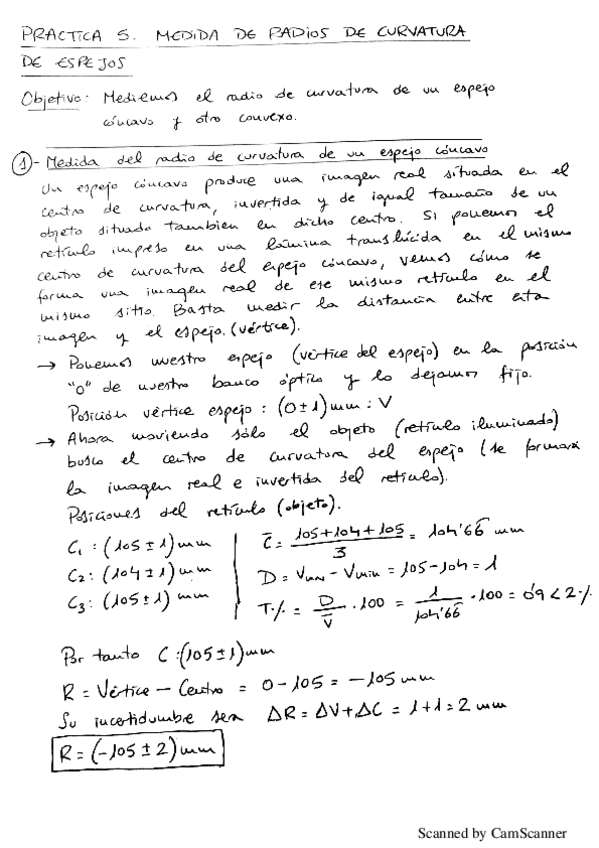 PRACTICA 5. MEDIDA DE RADIOS DE CURVATURA
DE ESPEJOS
Objetivo: Mediremos el radio de curvatura de un espejo
cóncavo y otro convexo.
1)- Medida del radio de curvatura de un espejo cóncavo
Un espejo cóncavo produce una imagen real situada en el
centro de curvatura, invertida y de igual tamaño de un
objeto situado tambien en dicho centro. Si ponemos el
retículo impreso en una lámina translúcida en el mismo
centro de curvatura del espejo cóncavo, vemos cómo se
forma una imagen real de ese mismo retículo en el
mismo sitio. Basta medir la distancia entre esta
imagen y el espejo. (vértice).
→ Ponemos nuestro espejo (vértice del espejo) en la posición
"0" de nuestro banco óptico y lo dejamos fijo.
Posición vértice espejo : (0±1)mm : V
→ Ahora moviendo sólo el objeto (retículo iluminado)
busco el centro de curvatura del espejo (se formará
la imagen real e invertida del retículo).
Posiciones del retículo (objeto).
C₁ : (105 ± 1) mm
C₂ : (104 ± 1) mm
C₃ : (105 ± 1) mm
C̄ = (105+104+105)/3 = 104'66 mm
D = Vmax - Vmin = 105-104 = 1
T% = D/V̄ · 100 = 1/104'66 · 100 = 0'9 < 2%
Por tanto C :(105 ± 1) mm
R = Vértice - Centro = 0 - 105 = -105 mm
Su incertidumbre será ΔR = ΔV + ΔC = 1+1 = 2 mm
R = (-105 ± 2) mm
Scanned by CamScanner